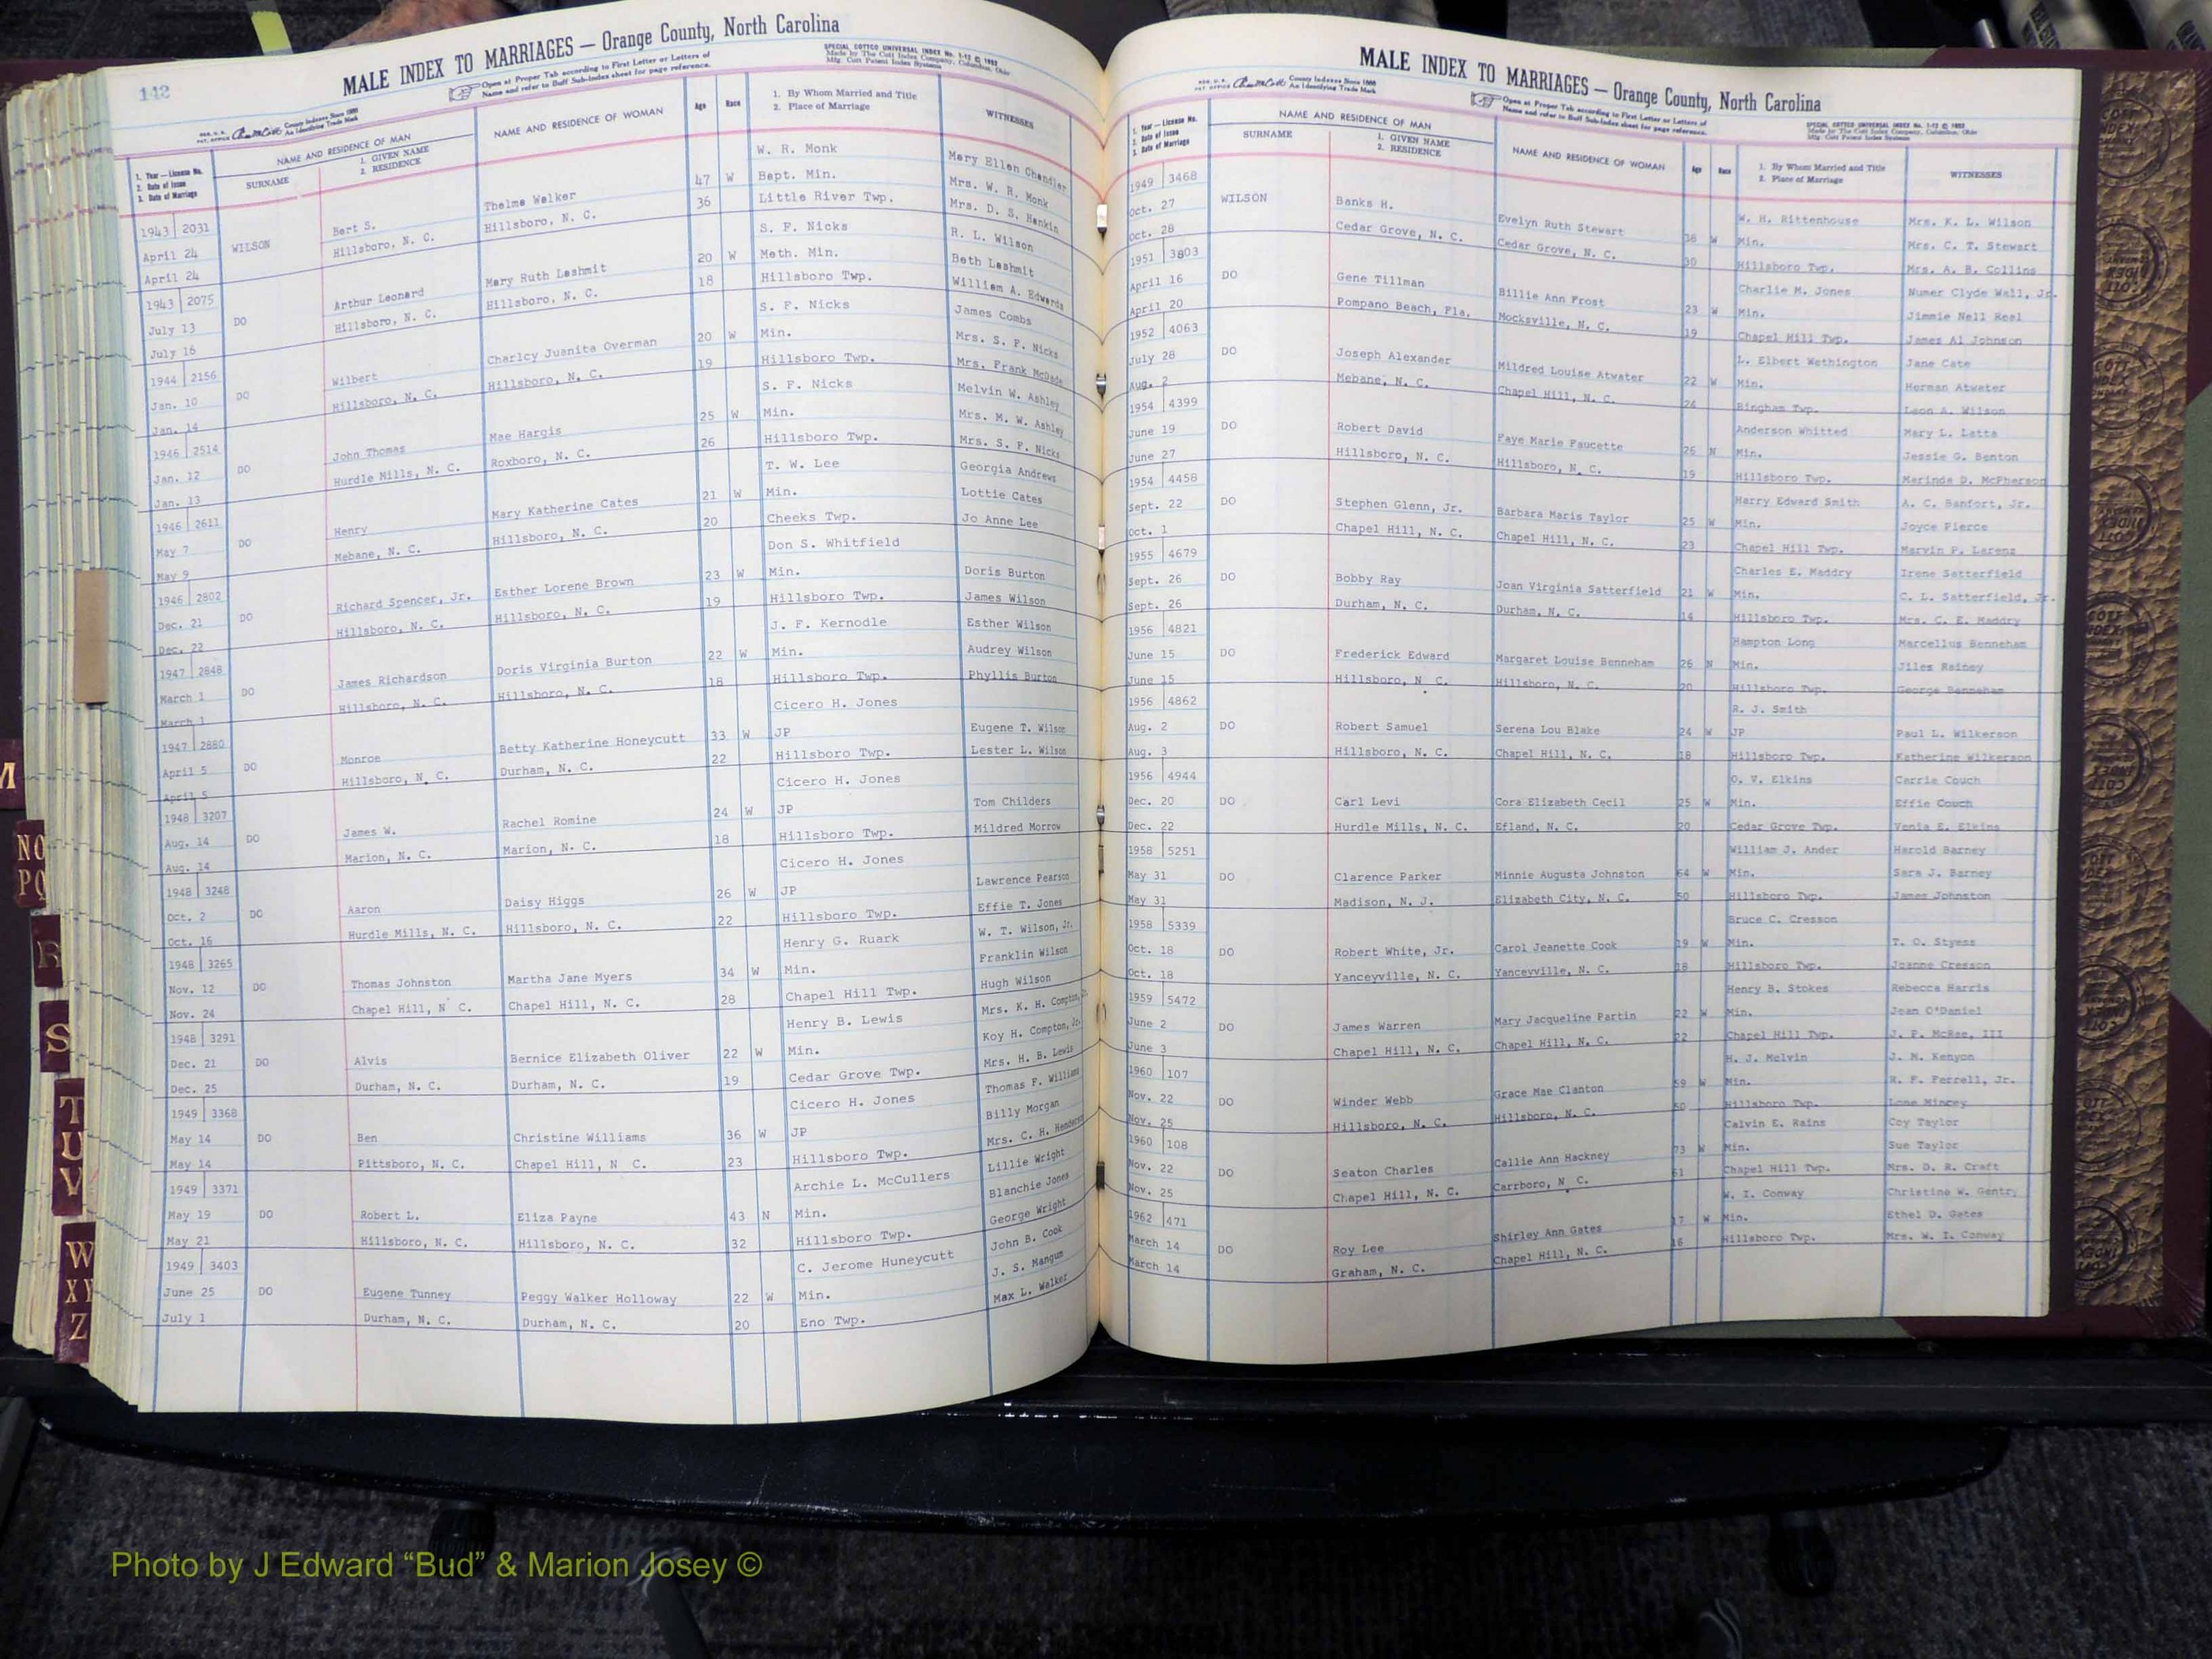 142
MALE INDEX TO MARRIAGES — Orange County, North Carolina
Open at Proper Tab according to First Letter or Letters of
Name and refer to Buff Sub-Index sheet for page reference.
SPECIAL COTTCO UNIVERSAL INDEX No. 1-12 © 1952
Made by The Cott Index Company, Columbus, Ohio
Mfg. Cott Patent Index Systems
County Indexes Since 1888
An Identifying Trade Mark
1. Year — License No.
2. Date of Issue
3. Date of Marriage
NAME AND RESIDENCE OF MAN
SURNAME
1. GIVEN NAME
2. RESIDENCE
NAME AND RESIDENCE OF WOMAN
Age
Race
1. By Whom Married and Title
2. Place of Marriage
WITNESSES
1943 2031 Bert S. Thelma Walker 47 W W. R. Monk Mary Ellen Chandler
April 24 WILSON Hillsboro, N. C. Hillsboro, N. C. 36 Bapt. Min. Mrs. W. R. Monk
April 24 Little River Twp. Mrs. D. S. Hankin
1943 2075 Arthur Leonard Mary Ruth Lashmit 20 W S. F. Nicks R. L. Wilson
July 13 DO Hillsboro, N. C. Hillsboro, N. C. 18 Meth. Min. Beth Lashmit
July 16 Hillsboro Twp. William A. Edwards
1944 2156 Wilbert Charlcy Juanita Overman 20 W S. F. Nicks James Combs
Jan. 10 DO Hillsboro, N. C. Hillsboro, N. C. 19 Min. Mrs. S. F. Nicks
Jan. 14 Hillsboro Twp. Mrs. Frank McDade
1946 2514 John Thomas Mae Hargis 25 W S. F. Nicks Melvin W. Ashley
Jan. 12 DO Hurdle Mills, N. C. Roxboro, N. C. 26 Min. Mrs. M. W. Ashley
Jan. 13 Hillsboro Twp. Mrs. S. F. Nicks
1946 2611 Henry Mary Katherine Cates 21 W T. W. Lee Georgia Andrews
May 7 DO Mebane, N. C. Hillsboro, N. C. 20 Min. Lottie Cates
May 9 Cheeks Twp. Jo Anne Lee
1946 2802 Richard Spencer, Jr. Esther Lorene Brown 23 W Don S. Whitfield
Dec. 21 DO Hillsboro, N. C. Hillsboro, N. C. 19 Min. Doris Burton
Dec. 22 Hillsboro Twp. James Wilson
1947 2848 James Richardson Doris Virginia Burton 22 W J. F. Kernodle Esther Wilson
March 1 DO Hillsboro, N. C. Hillsboro, N. C. 18 Min. Audrey Wilson
March 1 Hillsboro Twp. Phyllis Burton
1947 2880 Monroe Betty Katherine Honeycutt 33 W Cicero H. Jones
April 5 DO Hillsboro, N. C. Durham, N. C. 22 JP Eugene T. Wilson
April 5 Hillsboro Twp. Lester L. Wilson
1948 3207 James W. Rachel Romine 24 W Cicero H. Jones
Aug. 14 DO Marion, N. C. Marion, N. C. 18 JP Tom Childers
Aug. 14 Hillsboro Twp. Mildred Morrow
1948 3248 Aaron Daisy Higgs 26 W Cicero H. Jones
Oct. 2 DO Hurdle Mills, N. C. Hillsboro, N. C. 22 JP Lawrence Pearson
Oct. 16 Hillsboro Twp. Effie T. Jones
1948 3265 Thomas Johnston Martha Jane Myers 34 W Henry G. Ruark W. T. Wilson, Jr.
Nov. 12 DO Chapel Hill, N C. Chapel Hill, N. C. 28 Min. Franklin Wilson
Nov. 24 Chapel Hill Twp. Hugh Wilson
1948 3291 Alvis Bernice Elizabeth Oliver 22 W Henry B. Lewis Mrs. K. H. Compton, Jr.
Dec. 21 DO Durham, N. C. Durham, N. C. 19 Min. Koy H. Compton, Jr.
Dec. 25 Cedar Grove Twp. Mrs. H. B. Lewis
1949 3368 Ben Christine Williams 36 W Cicero H. Jones Thomas F. Williams
May 14 DO Pittsboro, N. C. Chapel Hill, N C. 23 JP Billy Morgan
May 14 Hillsboro Twp. Mrs. C. H. Henderson
1949 3371 Robert L. Eliza Payne 43 N Archie L. McCullers Lillie Wright
May 19 DO Hillsboro, N. C. Hillsboro, N. C. 32 Min. Blanchie Jones
May 21 Hillsboro Twp. George Wright
1949 3403 Eugene Tunney Peggy Walker Holloway 22 W C. Jerome Huneycutt John B. Cook
June 25 DO Durham, N. C. Durham, N. C. 20 Min. J. S. Mangum
July 1 Eno Twp. Max L. Walker
MALE INDEX TO MARRIAGES — Orange County, North Carolina
County Indexes Since 1888
An Identifying Trade Mark
Open at Proper Tab according to First Letter or Letters of
Name and refer to Buff Sub-Index sheet for page reference.
SPECIAL COTTCO UNIVERSAL INDEX No. 1-12 © 1952
Made by The Cott Index Company, Columbus, Ohio
Mfg. Cott Patent Index Systems
1. Year — License No.
2. Date of Issue
3. Date of Marriage
NAME AND RESIDENCE OF MAN
SURNAME
1. GIVEN NAME
2. RESIDENCE
NAME AND RESIDENCE OF WOMAN
Age
Race
1. By Whom Married and Title
2. Place of Marriage
WITNESSES
1949 3468 Banks H. Evelyn Ruth Stewart 38 W W. H. Rittenhouse Mrs. K. L. Wilson
Oct. 27 WILSON Cedar Grove, N. C. Cedar Grove, N. C. 30 Min. Mrs. C. T. Stewart
Oct. 28 Hillsboro Twp. Mrs. A. B. Collins
1951 3803 Gene Tillman Billie Ann Frost 23 W Charlie M. Jones Numer Clyde Wall, Jr.
April 16 DO Pompano Beach, Fla. Mocksville, N. C. 19 Min. Jimmie Nell Reel
April 20 Chapel Hill Twp. James Al Johnson
1952 4063 Joseph Alexander Mildred Louise Atwater 22 W L. Elbert Wethington Jane Cate
July 28 DO Mebane, N. C. Chapel Hill, N. C. 24 Min. Herman Atwater
Aug. 2 Bingham Twp. Leon A. Wilson
1954 4399 Robert David Faye Marie Faucette 26 N Anderson Whitted Mary L. Latta
June 19 DO Hillsboro, N. C. Hillsboro, N. C. 19 Min. Jessie G. Benton
June 27 Hillsboro Twp. Marinda D. McPherson
1954 4458 Stephen Glenn, Jr. Barbara Maris Taylor 25 W Harry Edward Smith A. C. Banfort, Jr.
Sept. 22 DO Chapel Hill, N. C. Chapel Hill, N. C. 23 Min. Joyce Pierce
Oct. 1 Chapel Hill Twp. Marvin P. Larenz
1955 4679 Bobby Ray Joan Virginia Satterfield 21 W Charles E. Maddry Irene Satterfield
Sept. 26 DO Durham, N. C. Durham, N. C. 14 Min. C. L. Satterfield, Jr.
Sept. 26 Hillsboro Twp. Mrs. C. E. Maddry
1956 4821 Frederick Edward Margaret Louise Benneham 26 N Hampton Long Marcellus Benneham
June 15 DO Hillsboro, N C. Hillsboro, N. C. 20 Min. Jiles Rainey
June 15 Hillsboro Twp. George Benneham
1956 4862 Robert Samuel Serena Lou Blake 24 W R. J. Smith
Aug. 2 DO Hillsboro, N. C. Chapel Hill, N. C. 18 JP Paul L. Wilkerson
Aug. 3 Hillsboro Twp. Katherine Wilkerson
1956 4944 Carl Levi Cora Elizabeth Cecil 25 W O. V. Elkins Carrie Couch
Dec. 20 DO Hurdle Mills, N. C. Efland, N. C. 20 Min. Effie Couch
Dec. 22 Cedar Grove Twp. Venia E. Elkins
1958 5251 Clarence Parker Minnie Augusta Johnston 64 W William J. Ander Harold Barney
May 31 DO Madison, N. J. Elizabeth City, N. C. 50 Min. Sara J. Barney
May 31 Hillsboro Twp. James Johnston
1958 5339 Robert White, Jr. Carol Jeanette Cook 19 W Bruce C. Cresson
Oct. 18 DO Yanceyville, N. C. Yanceyville, N. C. 18 Min. T. O. Styess
Oct. 18 Hillsboro Twp. Joanne Cresson
1959 5472 James Warren Mary Jacqueline Partin 22 W Henry B. Stokes Rebecca Harris
June 2 DO Chapel Hill, N. C. Chapel Hill, N. C. 22 Min. Jean O'Daniel
June 3 Chapel Hill Twp. J. P. McRae, III
1960 107 Winder Webb Grace Mae Clanton 59 W H. J. Melvin J. M. Kenyon
Nov. 22 DO Hillsboro, N. C. Hillsboro, N. C. 50 Min. R. F. Ferrell, Jr.
Nov. 25 Hillsboro Twp. Lone Mincey
1960 108 Seaton Charles Callie Ann Hackney 73 W Calvin E. Rains Coy Taylor
Nov. 22 DO Chapel Hill, N. C. Carrboro, N C. 61 Min. Sue Taylor
Nov. 25 Chapel Hill Twp. Mrs. D. R. Craft
1962 471 Roy Lee Shirley Ann Gates 17 W W. I. Conway Christine W. Gentry
March 14 DO Graham, N. C. Chapel Hill, N. C. 16 Min. Ethel D. Gates
March 14 Hillsboro Twp. Mrs. W. I. Conway
M
NO
PQ
R
S
T
U
V
W
XY
Z
Photo by J Edward “Bud” & Marion Josey ©